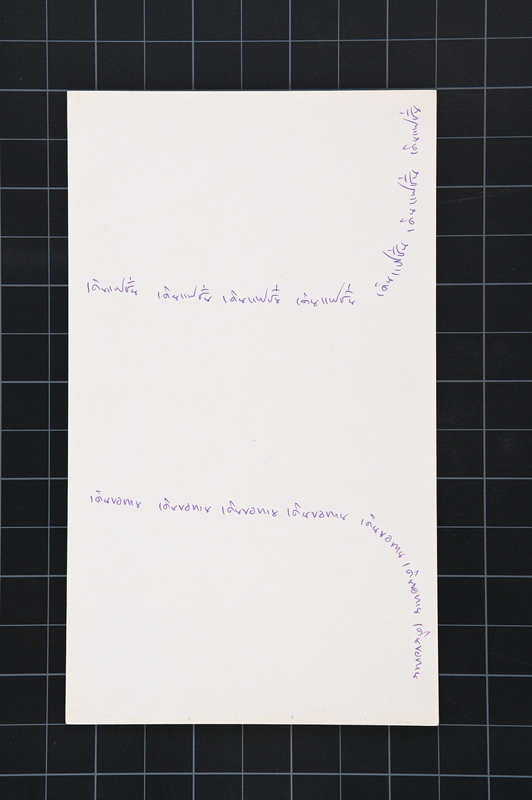 เดินแฟชั่น เดินแฟชั่น เดินแฟชั่น เดินแฟชั่น เดินแฟชั่น เดินแฟชั่น เดินแฟชั่น
เดินขอทาน เดินขอทาน เดินขอทาน เดินขอทาน เดินขอทาน เดินขอทาน เดินขอทาน